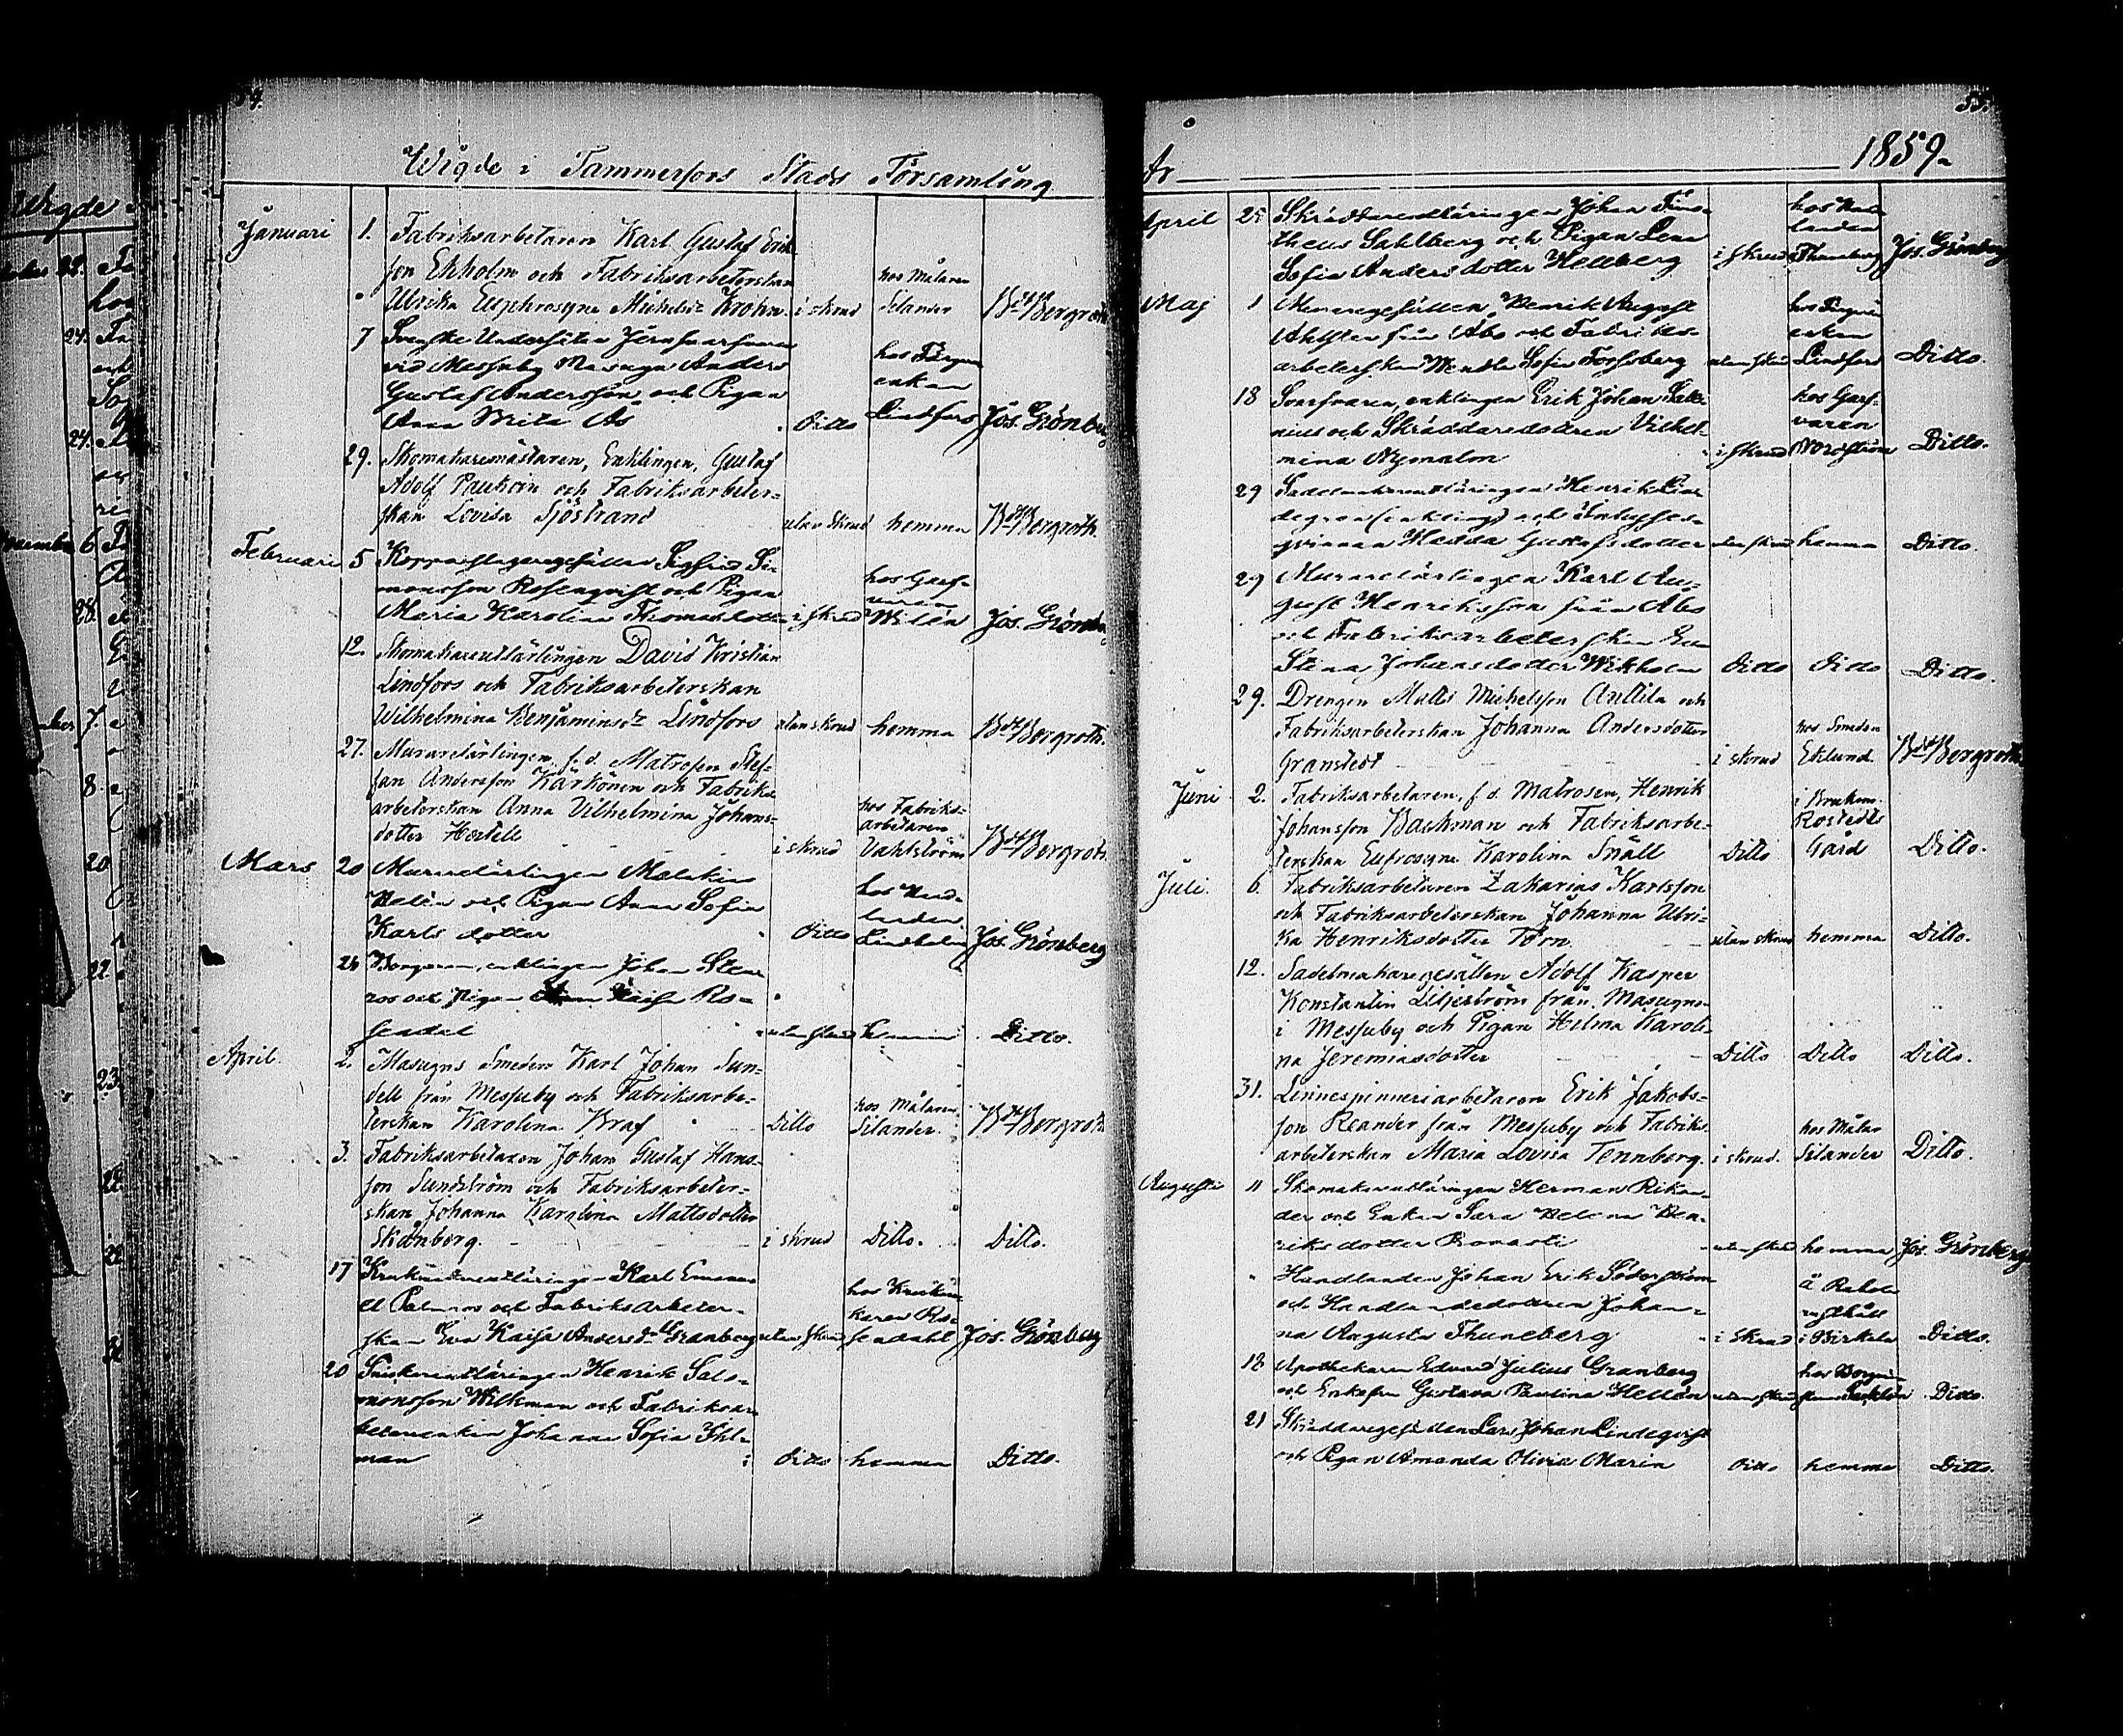 54.
Wigde i Tammerfors Stads Församling
Januari 1. Fabriksarbetaren Karl Gustaf Erik
son Ekholm och Fabriksarbeterskan
Ulrika Euphrosyne Michelsdr Krohn. i skrud hos Målaren Silander Bergroth
7 Svenske Undersåten Jernsvarfvaren
vid Messuby Masugn Anders
Gustaf Andersson och Pigan
Anna Mila Ås Ditto hos Färgare enkan Lindfors Jos. Grönberg
29. Skomakaremästaren, Enklingen, Gustaf
Adolf och Fabriksarbeter=
skan Lovisa Sjöstrand utan skrud hemma Bergroth.
Februari 5 Kopparslagaregesällen Sigfrid Si=
monsson Rosenqvist och Pigan
Maria Karolina Thomasdotter i skrud hos Garf=varen Wilén Jos. Grönberg
12. Skomakareutlärlingen David Kristian
Lindfors och Fabriksarbeterskan
Wilhelmina Benjaminsdr Lindfors utan skrud hemma Bergroth.
27. Murarelärlingen f.d. Matrosen Stef=
fan Andersson Kärkönen och Fabriks
arbeterskan Anna Vilhelmina Johans=
dotter i skrud hos Fabriks=arbetaren Vahlström Bergroth
Mars 20 Murarelärlingen
och Pigan Anna Sofia
Karlsdotter Ditto hos Handlanden Lindholm Jos. Grönberg
26 Borgaren, enklingen Johan Sten
roos och Pigan Kaisa Ro=
sendal utan skrud hemma Ditto.
April. 2. Masugns Smeden Karl Johan Sun=
dell från Messuby och Fabriksarbe=
terskan Karolina Kraf Ditto hos Målaren Silander. Bergroth
3. Fabriksarbetaren Johan Gustaf Hans=
son Sundström och Fabriksarbeter=
skan Johanna Karolina Mattsdotter
Skånberg. i skrud Ditto. Ditto.
17 Karl Emanu
el och Fabriksarbeter=
skan Eva Kaisa Andersdr Granberg utan skrud hos Ro=sendahl Jos. Grönberg
20 Henrik Salo=
monsson Wilkman och Fabriksar
Johanna Sofia Ihl=
man Ditto hemma Ditto.
55.
År 1859.
April 25 Skräddareutläringen Johan Timo=
theus Sahlberg och Pigan Lena
Sofia Andersdotter Hellberg i skrud hos Handlanden Thuneberg Jos. Grönberg
Maj 1 Muraregesällen Henrik August
från Åbo och Fabriks=
arbeterskan Wendla Sofia Forssberg utan skrud hos Färgare enkan Lindfors Ditto.
18 Svarfvaren, enklingen Erik Johan
och Skräddaredottren Vilhel=
mina Nymalm i skrud hos Garf=varen Nordström Ditto.
29 Sadelmakareutläringen Henrik Lin
degren (enkling) och Inhyses=
qvinnan Hedda Gustafsdotter utan skrud hemma Ditto.
29 Murarelärlingen Karl Au=
gust Henriksson från Åbo
och Fabriksarbeterskan Eva
Stina Johansdotter Wikholm Ditto Ditto Ditto.
29. Drengen Matts Michelsson Anttila och
Fabriksarbeterskan Johanna Andersdotter
Granstedt i skrud hos Smeden Eklund Bergroth
Juni 2. Fabriksarbetaren, f.d. Matrosen, Henrik
Johansson Backman och Fabriksarbe=
terskan Eufrosyne Karolina Snäll Ditto i Rostedts Gård Ditto.
Juli. 6. Fabriksarbetaren Zakarias Karlsson
och Fabriksarbeterskan Johanna Ulri=
ka Henriksdotter Törn. utan skrud hemma Ditto.
12. Sadelmakaregesällen Adolf Kasper
Konstantin Liljeström från Masugnen
i Messuby och Pigan Helma Karoli=
na Jeremiasdotter Ditto Ditto Ditto.
31. Linnespinneriarbetaren Erik Jakobs=
son Reander från Messuby och Fabriks
arbeterskan Maria Lovisa Tennberg. i skrud. hos Målar Silander Ditto.
Augusti 11 Skomakareutläringen Herman Rikan=
der och Enkan Sara Helena Hen=
riksdotter utan skrud hemma Jos. Grönberg
" Handlanden Johan Erik Söderström
och Handlandedottren Johan=
na Augusta Thuneberg i skrud i Birkala Ditto.
18 Apothekaren Edvard Julius Granberg
och Enkefru Gustava Paulina Hellén utan skrud Ditto.
21 Skräddaregesällen Lars Johan Lindeqvist
och Pigan Amanda Olivia Marin Ditto hemma Ditto.